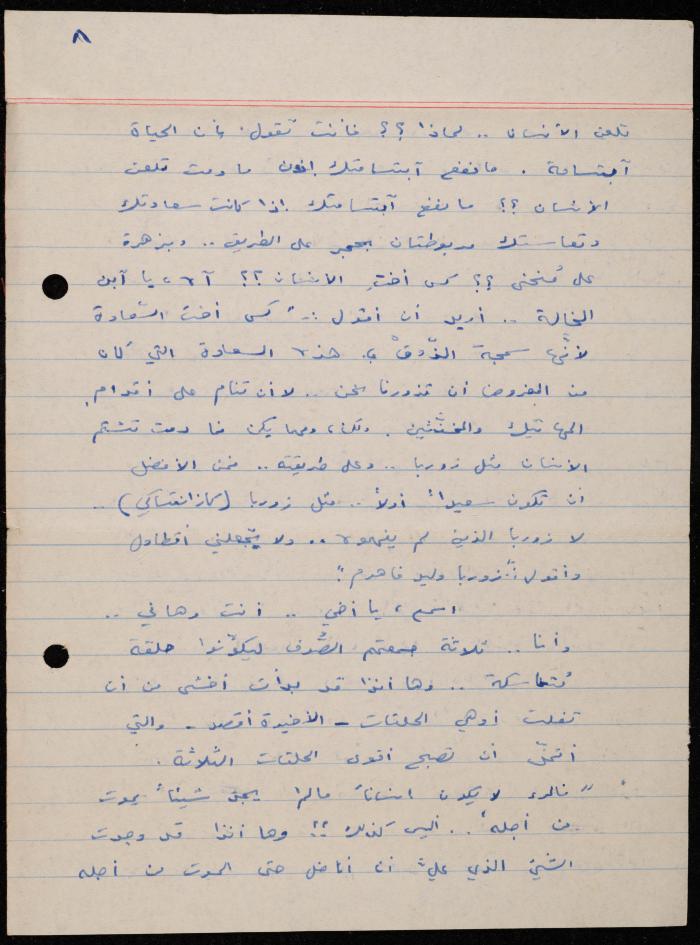 ٨
تلعن الانسان .. لماذا ؟؟ فأنت تقول بأن الحياة
آبتسامة . ما نفع آبتسامتك إذن ما دمت تلعن
الانسان ؟؟ ما نفع آبتسامتك إذا كانت سعادتك
وتعاستك مربوطتان بحجر على الطريق .. وبزهرة
على مُنحنى ؟؟ كس أخت الانسان ؟؟ آه ، يا آبن
الخالة .. أريد أن أقول : " كس أخت السّعادة
لأنّها سمجة الذّوق " . هذه السعادة التي كان
من المفروض أن تزورنا نحن .. لا أن تنام على أقدام
المهاتيك والمخنّثين . ولكن ، ومهما يكن فما دمت تشتم
الانسان مثل زوربا .. وعلى طريقته .. فمن الأفضل
أن تكون سعيداً أولاً .. مثل زوربا (كازانتساكي) ..
لا زوربا الذين لم يفهموه .. ولا تجعلني أتطاول
وأقول : " زوربا وليو فاهرم "
اسمع ، يا أخي .. أنت وهاني ..
وأنا .. ثلاثة جمعتهم الصُّدف ليكوّنوا حلقة
مُتماسكة .. وها أنذا قد بدأت أخشى من أن
تفلت أوهى الحلقات - الأخيرة أقصد - والتي
أتمنّى أن تصبح أقوى الحلقات الثلاثة .
" فالمرء لا يكون انساناً ما لم يجد شيئاً يموت
من أجله " . . أليس كذلك ؟؟ وها أنذا قد وجدت
الشيئ الذي عليّ أن أناضل حتى الموت من أجله